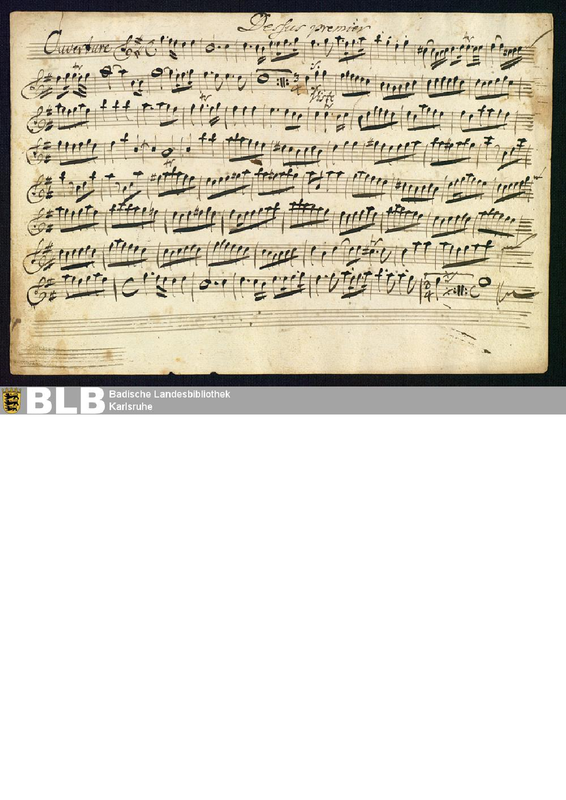 Dessus premier
Ouverture
BLB
Badische Landesbibliothek
Karlsruhe